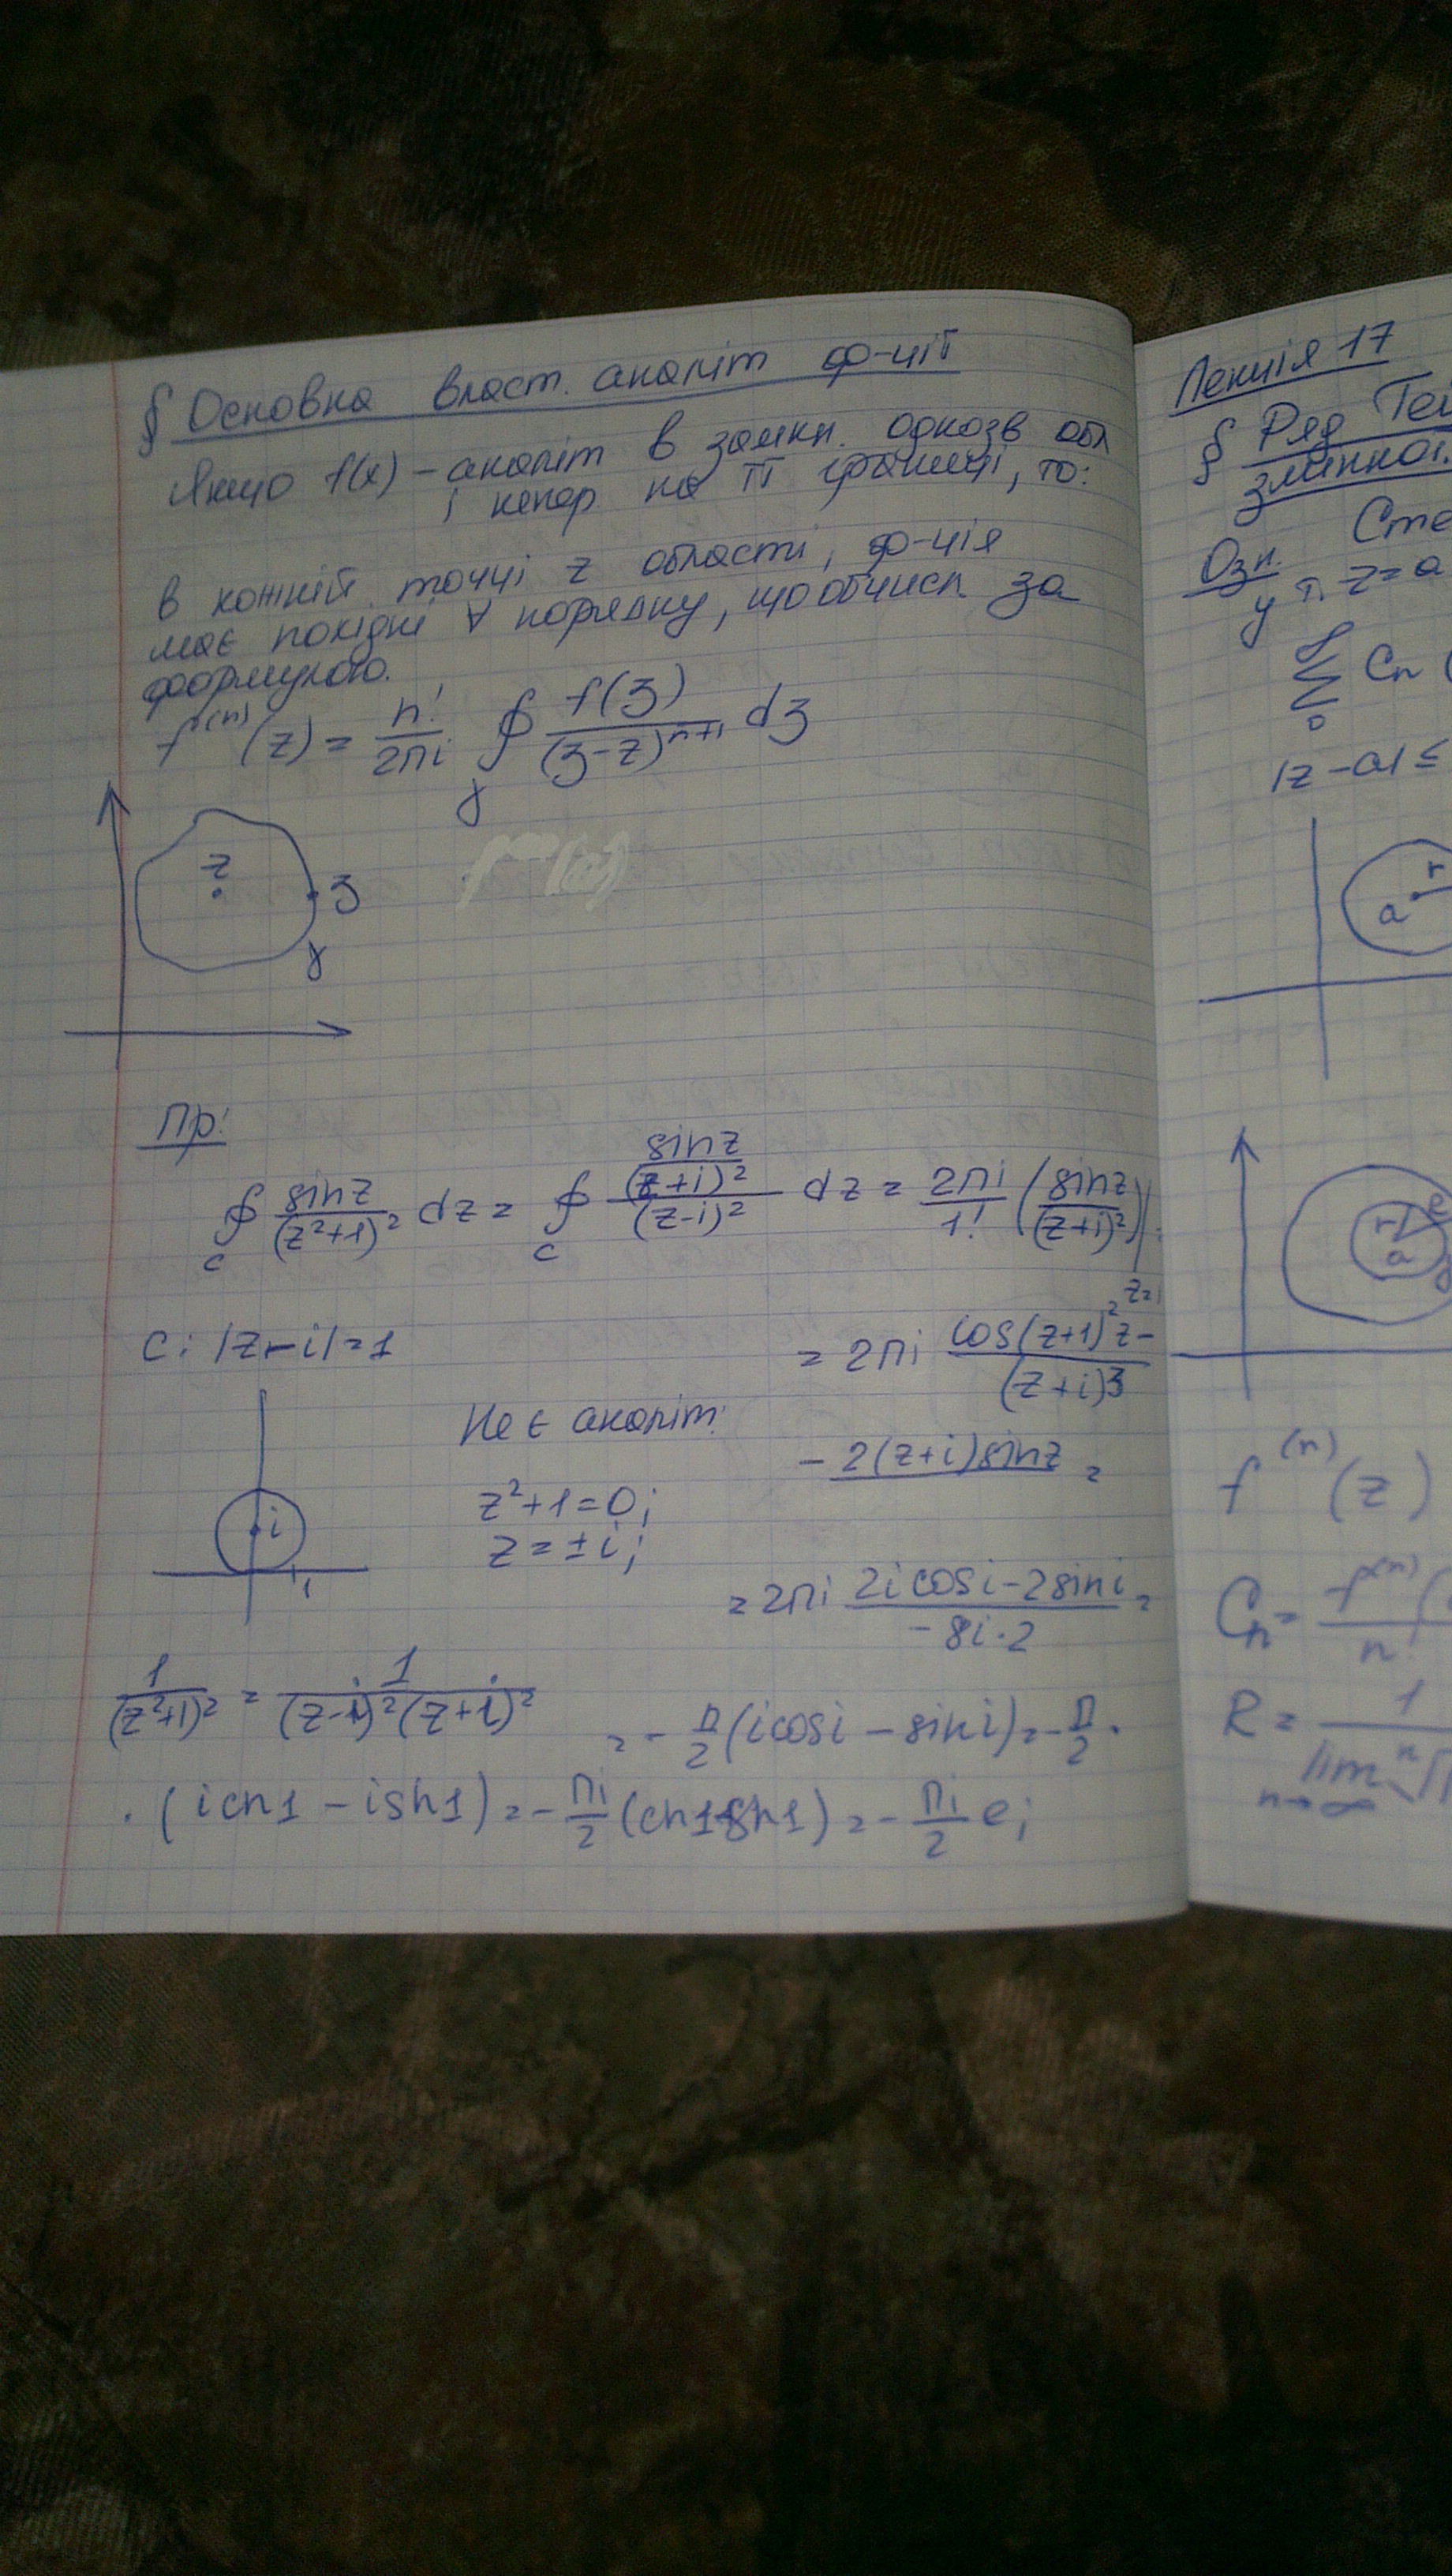 § Основна власт. аналіт ф-цій
Якщо f(x) – аналіт в замкн. однозв обл
і непер на її границі, то:
в кожній точці z області, ф-ція
має похідні ∀ порядку, що обчисл. за
формулою.
f⁽ⁿ⁾(z) = n!/2πi ∮γ f(ʒ)/(ʒ-z)ⁿ⁺¹ dʒ
z
ʒ
γ
Пр:
∮c sinz/(z²+1)² dz = ∮c (sinz/(z+i)²)/(z-i)² dz = 2πi/1! (sinz/(z+i)²)'
z=i
c: |z-i|=1
= 2πi cos(z+1)²z-/(z+i)3
Не є аналіт:
- 2(z+i)sinz =
i
1
z²+1=0;
z=±i;
= 2πi (2i cosi - 2sini)/(-8i·2) =
1/(z²+1)² = 1/((z-i)²(z+i)²)
= - π/2 (i cosi - sini) = - π/2 ·
· (i ch1 - ish1) = - πi/2 (ch1-sh1) = - πi/2 e;
Лекція 17
§ Ряд Тей
змінної.
Сте
Озн.
у т. z=a
∑ Cn (
0
|z-a| ≤
r
a
r
a
f⁽ⁿ⁾(z)
Cn = f⁽ⁿ⁾(/n!
R = 1/lim ⁿ√
n→∞